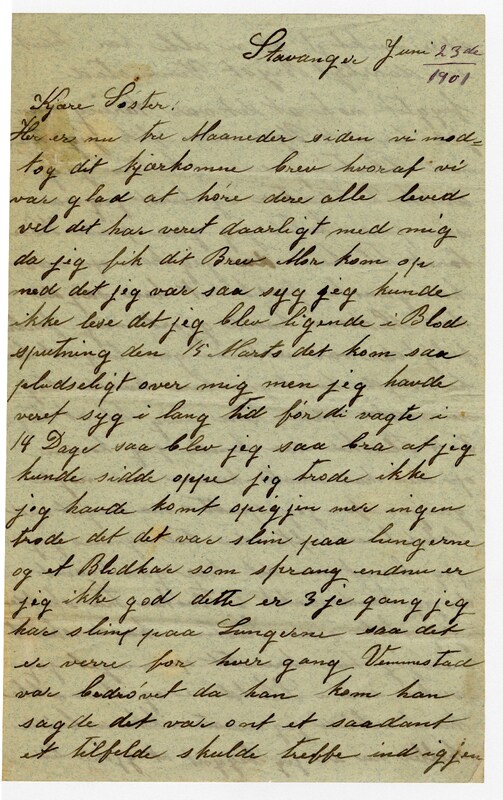 Stavanger Juni 23de
1901
Kjære Søster!
Her er nu tre Maaneder siden vi mod=
tog dit kjærkomne brev hvoraf vi
var glad at höre dere alle leved
vel det har veret daarligt med mig
da jeg fik dit Brev Mor kom op
med det jeg var saa syg jeg kunde
ikke lese det jeg blev ligende i Blod
sputning den 15 Marts det kom saa
pludseligt over mig men jeg havde
veret syg i lang tid för di vagte i
14 Dage saa blev jeg saa bra at jeg
kunde sidde oppe jeg trode ikke
jeg havde komt op igjen mer ingen
trode det det var slim paa lungerne
og et Blodkar som sprang endnu er
jeg ikke god dette er 3je gang jeg
har slim paa Lungerne saa det
er verre for hver gang Vemmestad
var bedrövet da han kom han
sagde det var ont et saadant
et tilfelde skulde treffe ind igjen